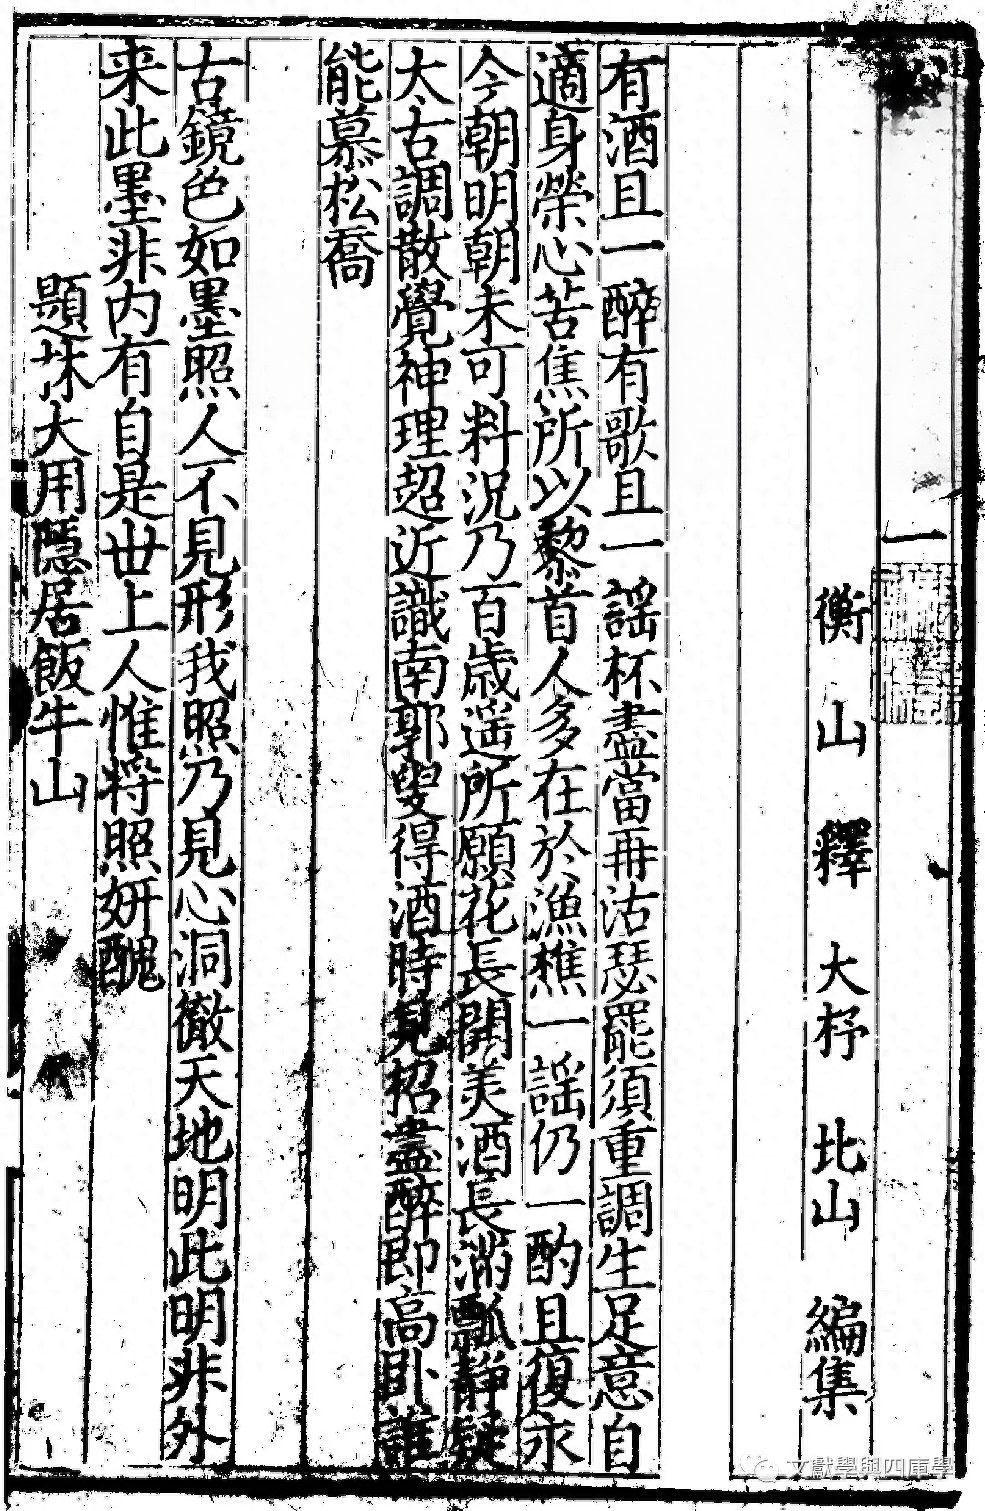 一
衡山釋大杼北山編集
有酒且一醉有歌且一謡杯盡當再沽瑟罷須重調生足意自
適身榮心苦焦所以黎首人多在於漁樵一謡仍一酌且復永
今朝明朝未可料況乃百歳遥所願花長開美酒長滿瓢靜疑
太古調散覺神理超近識南郭叟得酒時見招盡醉即高卧誰
能慕松喬
古鏡色如墨照人不見形我照乃見心洞徹天地明此明非外
来此墨非内有自是丗上人惟将照妍醜
題大用隱居飯牛山
文獻學與四庫學